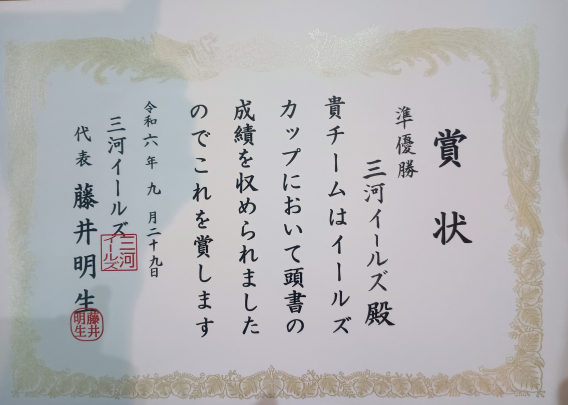 賞状
準優勝
三河イールズ殿
貴チームはイールズ
カップにおいて頭書の
成績を収められました
のでこれを賞します
令和六年九月二十九日
三河イールズ
三河イールズ
代表 藤井明生
藤井明生